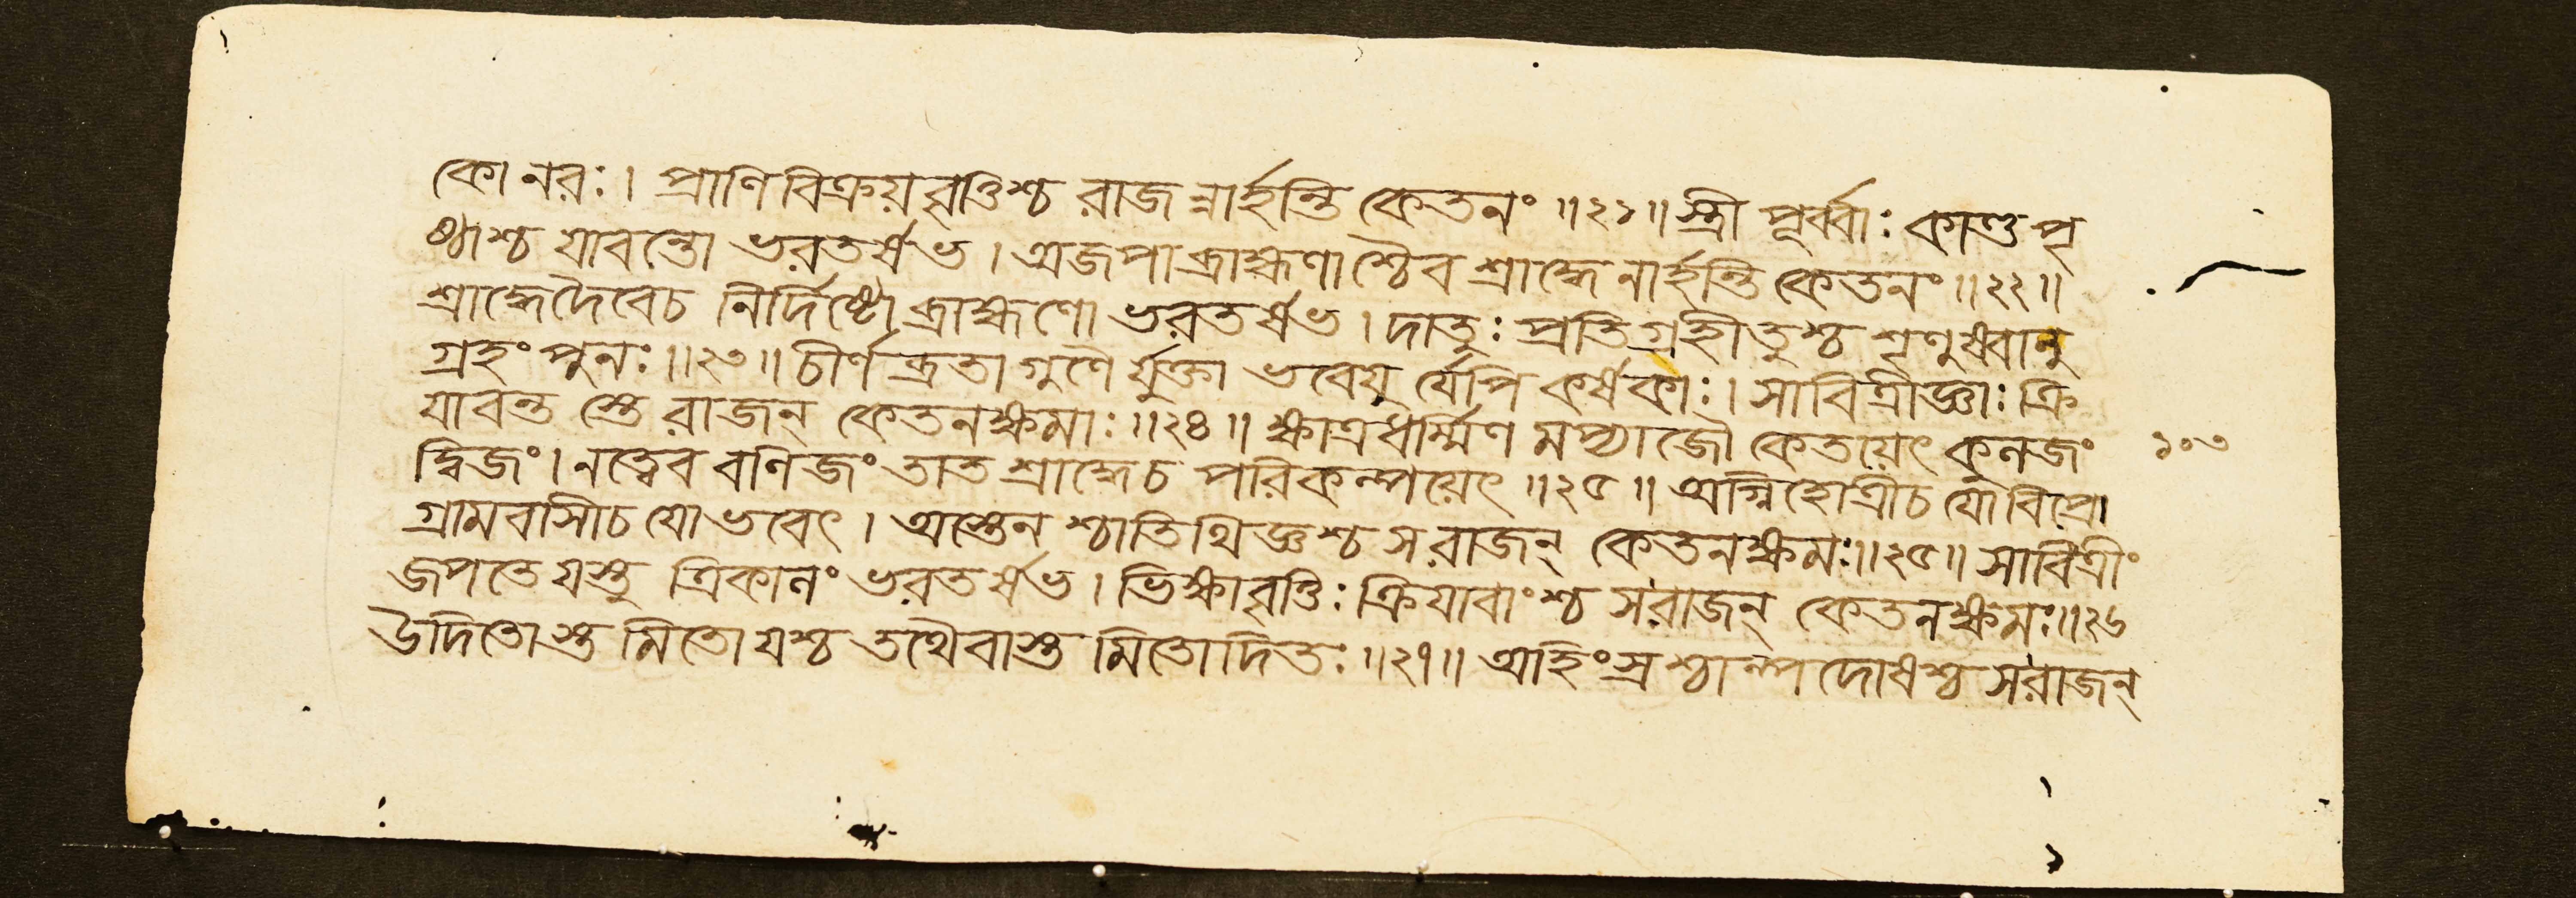 কো নরঃ। প্রাণিবিক্রয়বৃত্তিশ্চ রাজন্নার্হন্তি কেতনং॥২১॥ স্ত্রী পূর্ব্বাঃ কাণ্ডপৃ
ষ্ঠাশ্চ যাবন্তো ভরতর্ষভ। অজপা ব্রাহ্মণাশ্চৈব শ্রাদ্ধে নার্হন্তি কেতনং॥২২॥
শ্রাদ্ধে দৈবেচ নির্দিষ্টো ব্রাহ্মণো ভরতর্ষভ। দাতুঃ প্রতিগ্রহীতুশ্চ শৃণুষ্বানু
গ্রহং পুনঃ॥২৩॥ চীর্ণব্রতা গুণৈর্যুক্তা ভবেয়ু র্যেপি কর্ষকাঃ। সাবিত্রীজ্ঞাঃ ক্রি
যাবন্ত স্তে রাজন্ কেতনক্ষমাঃ॥২৪॥ ক্ষাত্রধর্ম্মিণ মপ্যাজৌ কেতয়েৎ কুলজং
দ্বিজং। নত্বেব বণিজং তাত শ্রাদ্ধেচ পরিকল্পয়েৎ॥২৫॥ অগ্নিহোত্রীচ যো বিপ্রো
গ্রামবাসীচ যো ভবেৎ। অস্তেন শ্চাতিথিজ্ঞশ্চ স রাজন্ কেতনক্ষমঃ॥২৫॥ সাবিত্রীং
জপতে যস্তু ত্রিকালং ভরতর্ষভ। ভিক্ষাবৃত্তিঃ ক্রিযাবাংশ্চ স রাজন্ কেতনক্ষমঃ॥২৬
উদিতোস্ত মিতো যশ্চ তথৈবাস্ত মিতোদিতঃ॥২৭॥ অহিংস্রশ্চাল্পদোষশ্চ স রাজন্
১০৩